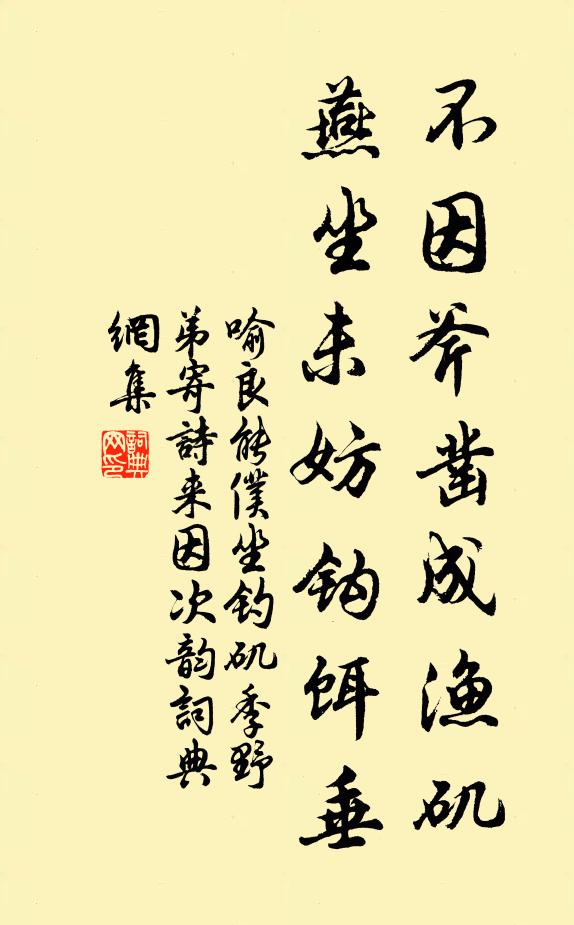 不因斧凿成渔矶
燕坐未妨钩饵垂
喻良能僕坐钓矶季野
弟寄詩来因次韵詞典
網集
詞典网印